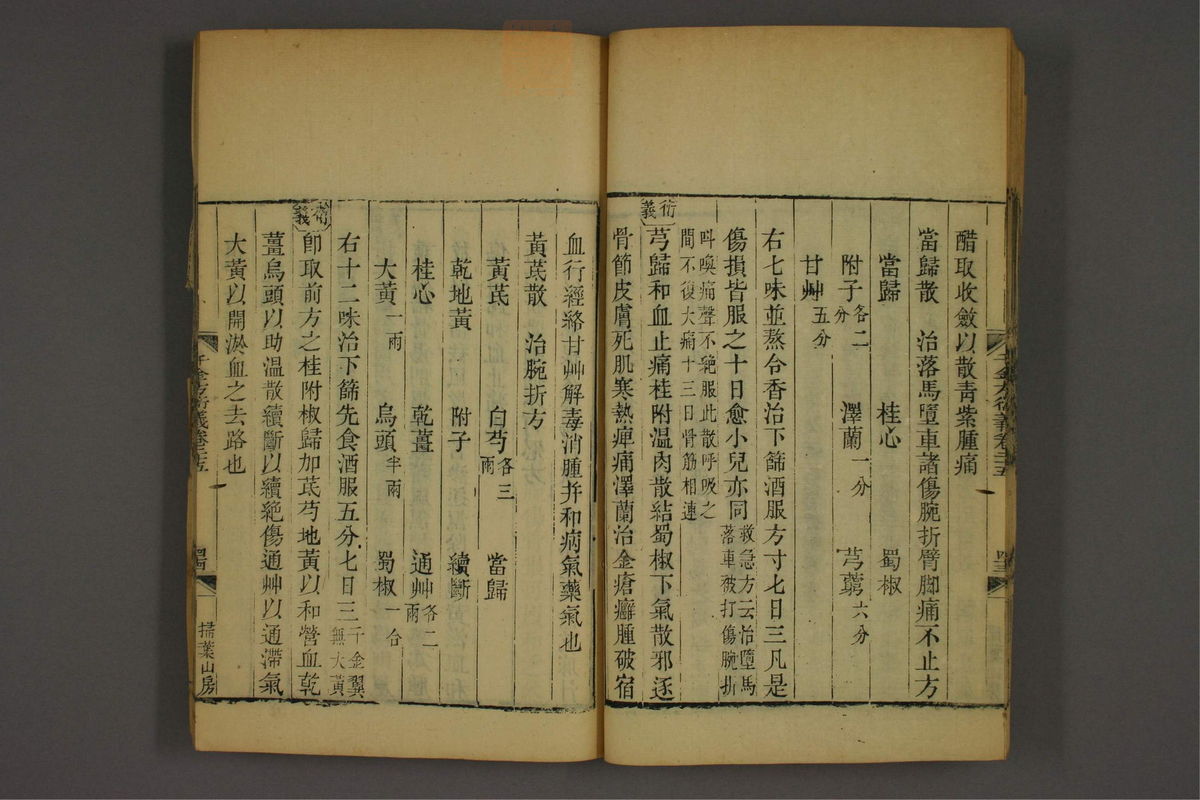 醋取收斂以散青紫腫痛
當歸散　治落馬墮車諸傷腕折臂脚痛不止方
當歸　桂心　蜀椒
附子各二分　澤蘭一分　芎藭六分
甘艸五分
右七味並熬令香治下篩酒服方寸七日三凡是
傷損皆服之十日愈小兒亦同救急方云治墮馬落車被打傷腕折
呌喚痛聲不絶服此散呼吸之間不復大痛十三日骨筋相連
衍義　芎歸和血止痛桂附温肉散結蜀椒下氣散邪逐
骨節皮膚死肌寒熱痺痛澤蘭治金瘡癰腫破宿
血行經絡甘艸解毒消腫并和病氣藥氣也
黃芪散　治腕折方
黃芪　白芍各三兩　當歸
乾地黃　附子　續斷
桂心　乾薑　通艸各二兩
大黃一兩　烏頭半兩　蜀椒一合
右十二味治下篩先食酒服五分七日三千金翼無大黃
衍義　卽取前方之桂附椒歸加芪芍地黃以和營血乾
薑烏頭以助温散續斷以續絶傷通艸以通滯氣
大黃以開淤血之去路也
千金方衍義卷二十五
掃葉山房